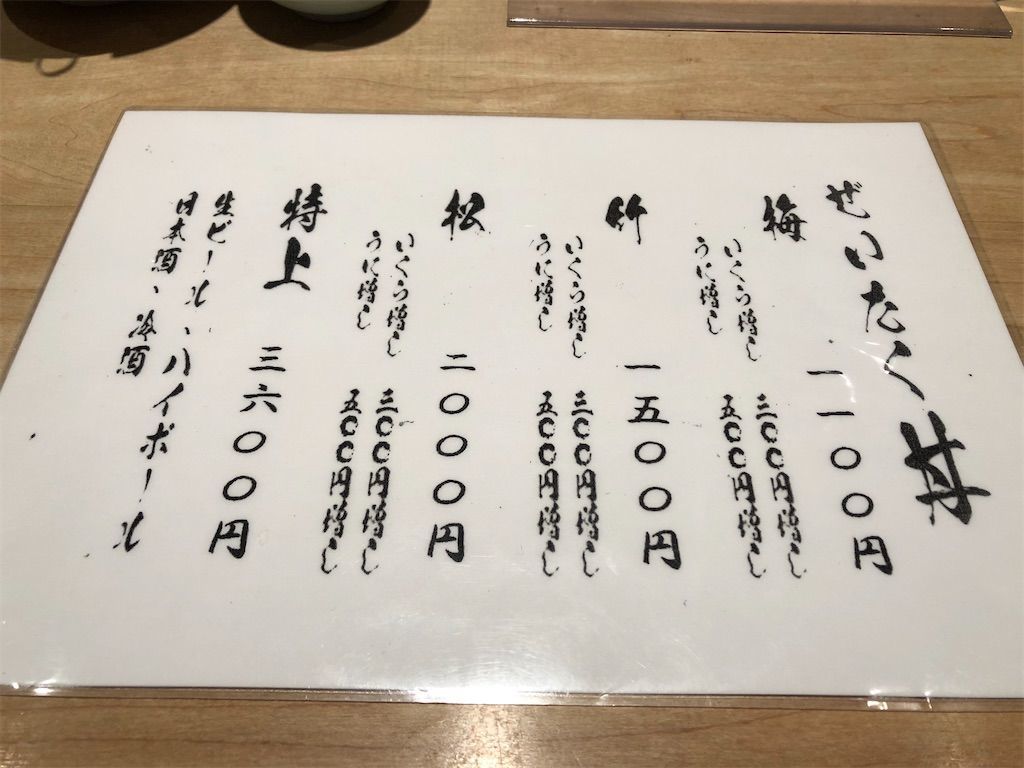 ぜいたく丼
梅　一一〇〇円
いくら増し　三〇〇円増し
うに増し　五〇〇円増し
竹　一五〇〇円
いくら増し　三〇〇円増し
うに増し　五〇〇円増し
松　二〇〇〇円
いくら増し　三〇〇円増し
うに増し　五〇〇円増し
特上　三六〇〇円
生ビール、ハイボール
日本酒、冷酒